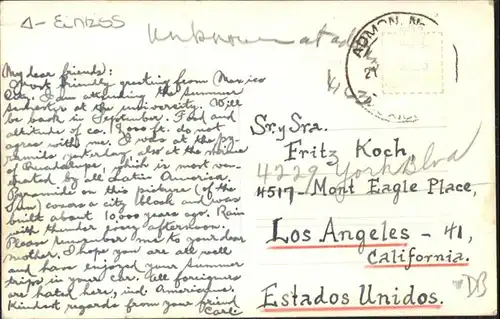 Δ- Είπ2ΕΘ
Unknown at ad
ADMON. No.
My dear friends):
friendly greeting from Mexico
City. I am attending the Summer
subjects at the university. Will
be back in September. Food and
altitude of ca. 8,000 ft. do not
agree with me. I was at the py-
ramids yesterday also at the
of Guadalupe which is most ven-
erated by all Latin America.
Pyramids on this picture (of the
Sun) covers a city block and was
built about 10,000 years ago. Rain
with thunder every afternoon.
Please remember me to your dear
mother. I hope you are all well
and have enjoyed your summer
trips in your car. foreigners
are hated here, incl. Americans.
Kindest regards from your friend
Carl.
Sr. y Sra.
Fritz Koch,
4229 York Blvd
4517- Mont Eagle Place,
Los Angeles - 41,
California.
Estados Unidos.
DB